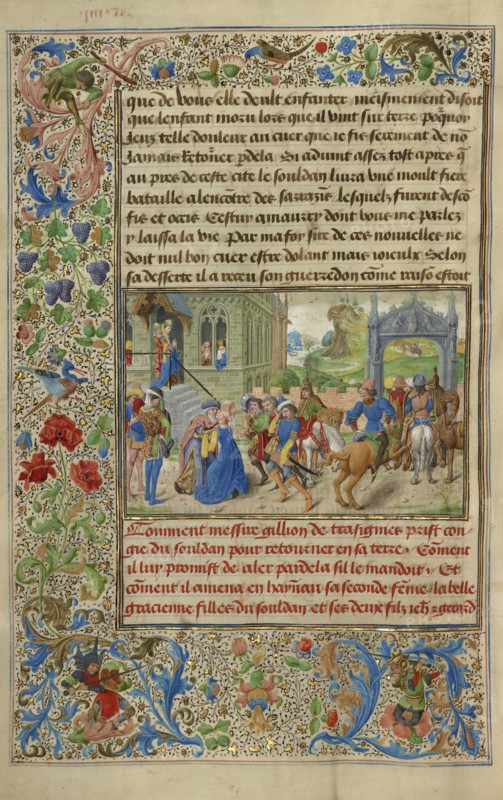 que de vous elle deult enfanter meismement disoit
que lenfant moru lors que il vint sur terre pourquoy
Jeuz telle douleur au cuer que ie fis serement de no
Jamais retourner pdela Si aduint assez tost apres q
au pres de ceste cite le souldan liura vne moult fiere
bataille alencontre des sarazins lesquelz furent descō
fis et occis Cestuy amaury dont vous me parlez
y laissa la vie Par ma foy sire de ces nouuelles ne
doit nul bon cuer estre dolant mais ioieulx Selon
sa desserte il a receu son guerredon cōme raisō estoit
Comment messire gillion de trasignies prist con
gie du souldan pour retourner en sa terre Cōment
il luy promist de aler pardela sil le mandoit Et
cōment il amena en haynnau sa seconde fēme la belle
gracienne fille du souldan et ses deux filz ieh gerard